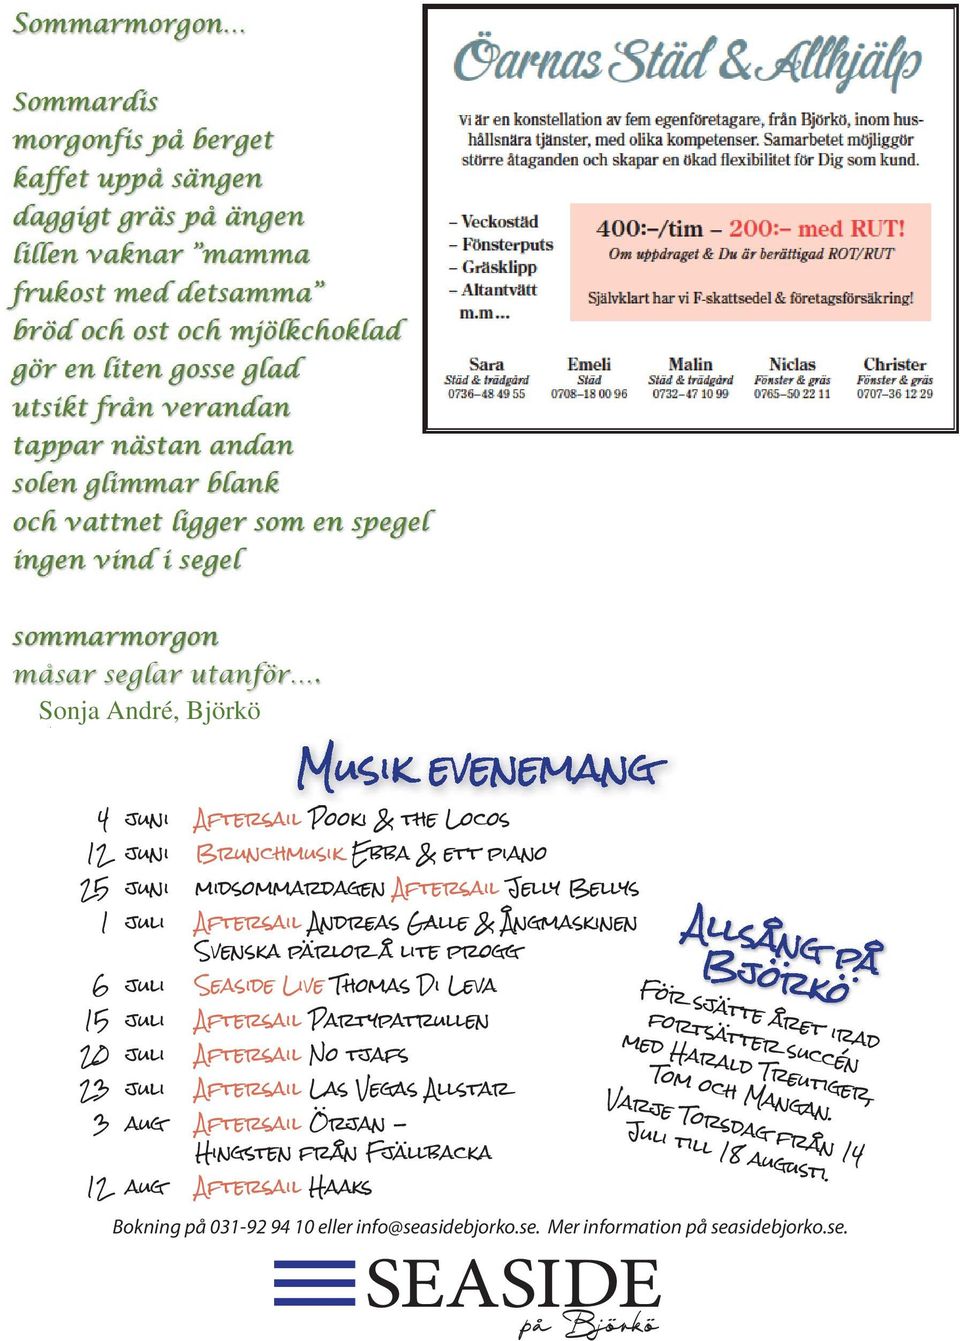 Sommarmorgon...
Sommardis
morgonfis på berget
kaffet uppå sängen
daggigt gräs på ängen
lillen vaknar ”mamma
frukost med detsamma”
bröd och ost och mjölkchoklad
gör en liten gosse glad
utsikt från verandan
tappar nästan andan
solen glimmar blank
och vattnet ligger som en spegel
ingen vind i segel
sommarmorgon
måsar seglar utanför....
Sonja André, Björkö
Öarnas Städ & Allhjälp
Vi är en konstellation av fem egenföretagare, från Björkö, inom hus-
hållsnära tjänster, med olika kompetenser. Samarbetet möjliggör
större åtaganden och skapar en ökad flexibilitet för Dig som kund.
– Veckostäd
– Fönsterputs
– Gräsklipp
– Altantvätt
m.m...
400:–/tim – 200:– med RUT!
Om uppdraget & Du är berättigad ROT/RUT
Självklart har vi F-skattsedel & företagsförsäkring!
Sara Emeli Malin Niclas Christer
Städ & trädgård Städ Städ & trädgård Fönster & gräs Fönster & gräs
0736–48 49 55 0708–18 00 96 0732–47 10 99 0765–50 22 11 0707–36 12 29
Musik evenemang
4 juni Aftersail Pooki & the Locos
12 juni Brunchmusik Ebba & ett piano
25 juni midsommardagen Aftersail Jelly Bellys
1 juli Aftersail Andreas Galle & Ångmaskinen
Svenska pärlor å lite progg
6 juli Seaside Live Thomas Di Leva
15 juli Aftersail Partypatrullen
20 juli Aftersail No tjafs
23 juli Aftersail Las Vegas Allstar
3 aug Aftersail Örjan –
Hingsten från Fjällbacka
12 aug Aftersail Haaks
Allsång på
Björkö
För sjätte året irad
fortsätter succén
med Harald Treutiger,
Tom och Mangan.
Varje Torsdag från 14
Juli till 18 augusti.
Bokning på 031-92 94 10 eller info@seasidebjorko.se. Mer information på seasidebjorko.se.
SEASIDE
på Björkö